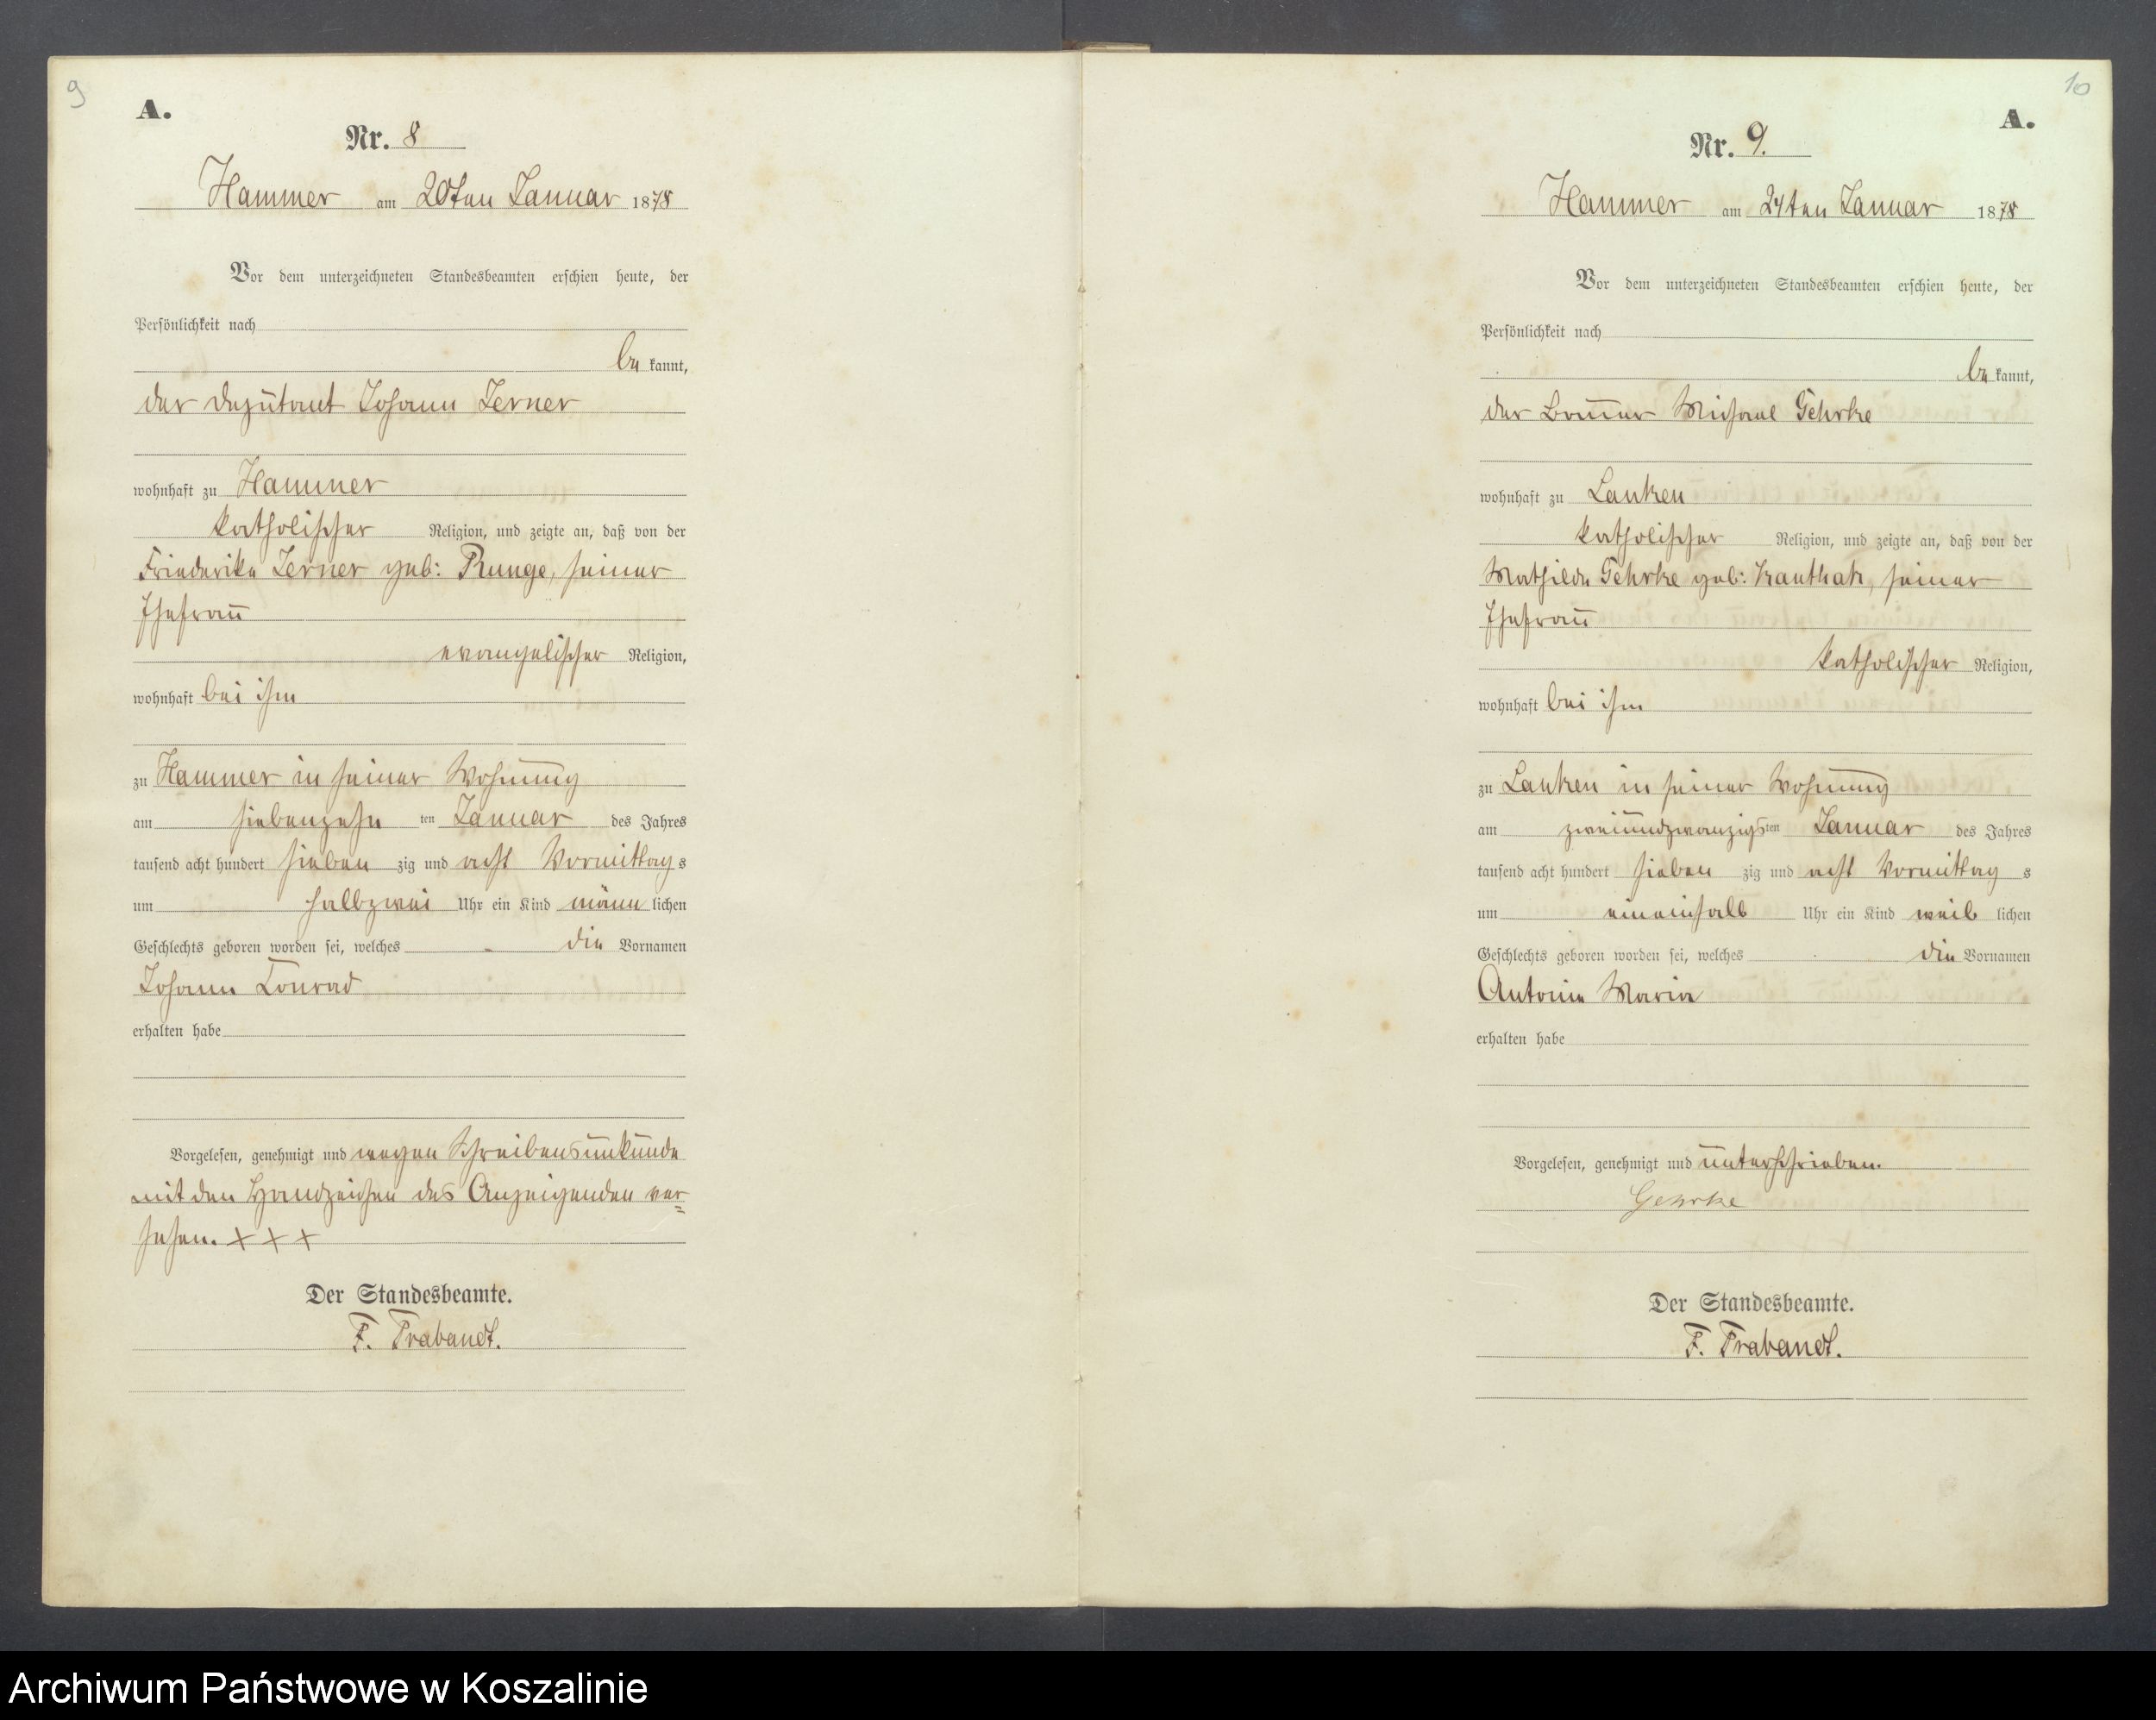 9
A.
Nr. 8
Hammer am 20ten Januar 1878
Vor dem unterzeichneten Standesbeamten erschien heute, der
Persönlichkeit nach
be kannt,
der Deputant Johann Zerner
wohnhaft zu Hammer
katholischer Religion, und zeigte an, daß von der
Friederike Zerner geb: Runge, seiner
Ehefrau
evangelischer Religion,
wohnhaft bei ihm
zu Hammer in seiner Wohnung
am siebenzehn ten Januar des Jahres
tausend acht hundert sieben zig und acht Vormittag s
um halbzwei Uhr ein Kind männ lichen
Geschlechts geboren worden sei, welches die Vornamen
Johann Conrad
erhalten habe
Vorgelesen, genehmigt und wegen Schreibensunkunde
mit den Handzeichen des Anzeigenden ver=
sehen. + + +
Der Standesbeamte.
F. Trabandt.
10
A.
Nr. 9.
Hammer am 24ten Januar 1878
Vor dem unterzeichneten Standesbeamten erschien heute, der
Persönlichkeit nach
be kannt,
der Bauer Michael Gehrke
wohnhaft zu Lanken
katholischer Religion, und zeigte an, daß von der
Mathilde Gehrke geb: Kanthak, seiner
Ehefrau
katholischer Religion,
wohnhaft bei ihm
zu Lanken in seiner Wohnung
am zweiundzwanzigs ten Januar des Jahres
tausend acht hundert sieben zig und acht Vormittag s
um eineinhalb Uhr ein Kind weib lichen
Geschlechts geboren worden sei, welches die Vornamen
Antonie Maria
erhalten habe
Vorgelesen, genehmigt und unterschrieben.
Gehrke
Der Standesbeamte.
F. Trabandt.
Archiwum Państwowe w Koszalinie